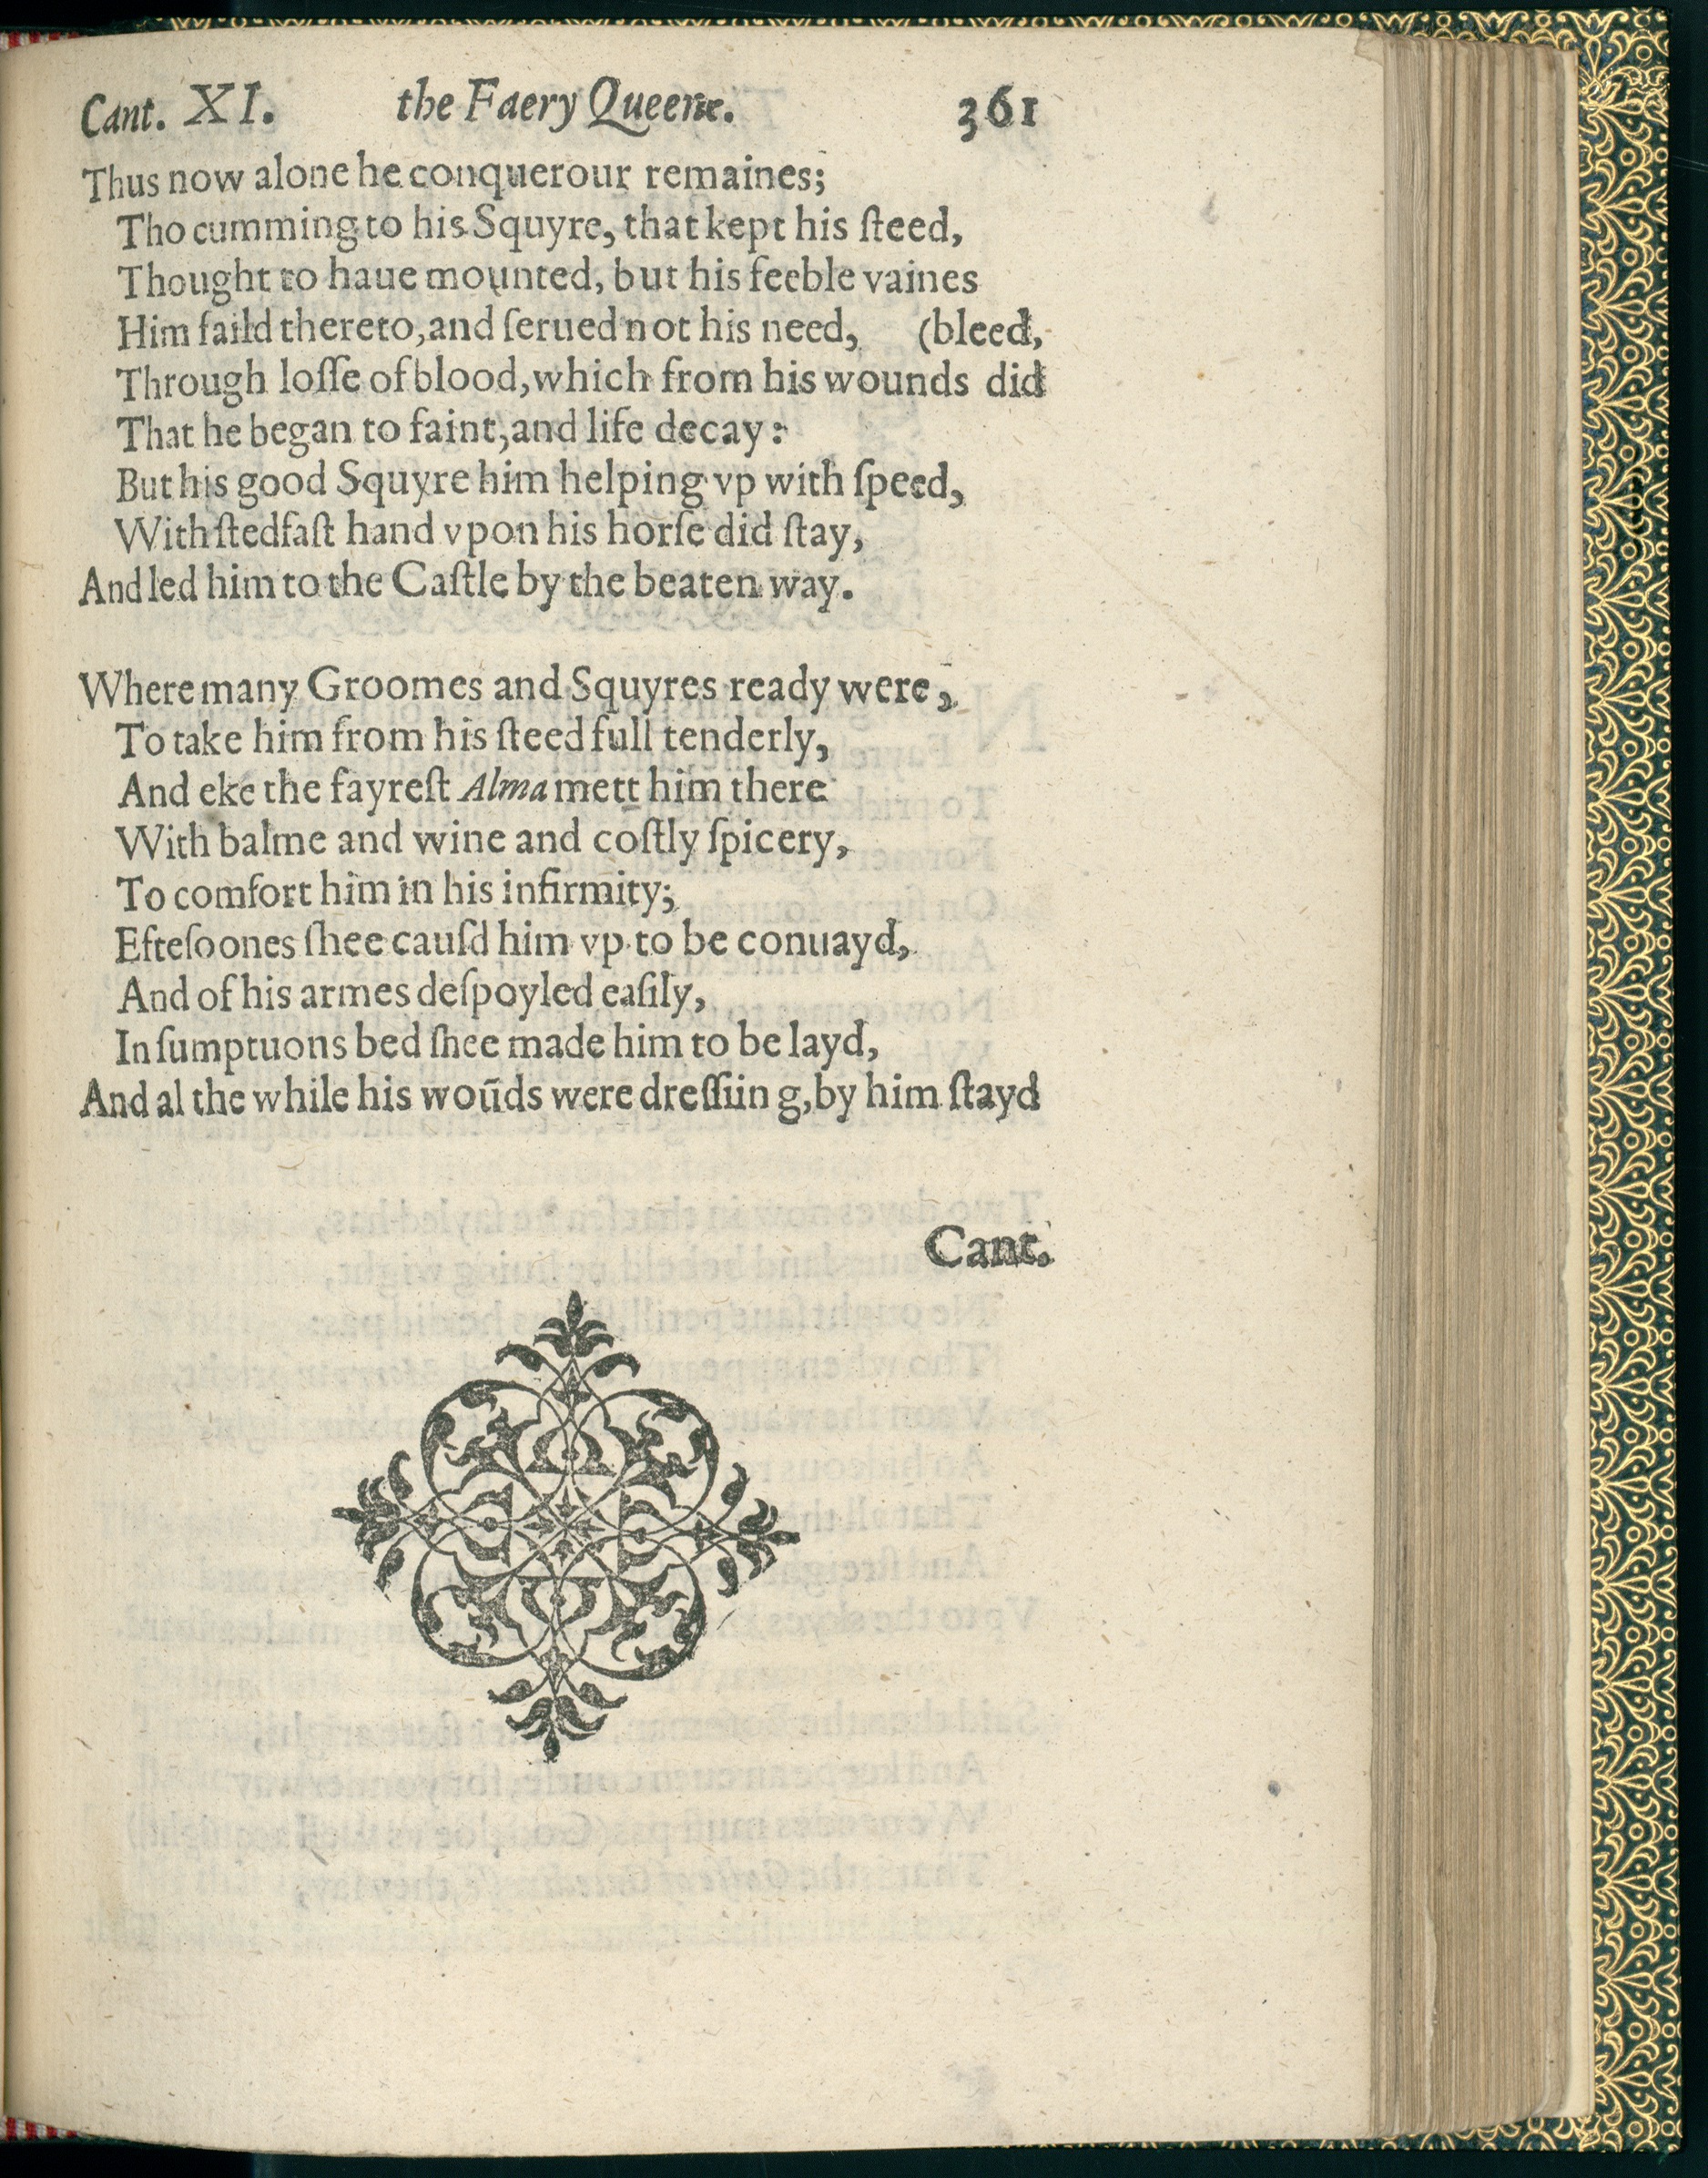 Cant. XI. the Faery Queene. 361
Thus now alone he conquerour remaines;
Tho cumming to his Squyre, that kept his ſteed,
Thought to haue mounted, but his feeble vaines
Him faild thereto, and ſerued not his need, (bleed,
Through loſſe of blood, which from his wounds did
That he began to faint, and life decay:
But his good Squyre him helping vp with ſpeed,
With ſtedfaſt hand vpon his horſe did ſtay,
And led him to the Caſtle by the beaten way.
Where many Groomes and Squyres ready were,
To take him from his ſteed full tenderly,
And eke the fayreſt Alma mett him there
With balme and wine and coſtly ſpicery,
To comfort him in his infirmity;
Efteſoones ſhee cauſd him vp to be conuayd,
And of his armes deſpoyled eaſily,
In ſumptuons bed ſhee made him to be layd,
And al the while his woũds were dreſſiin g, by him ſtayd
Cant.